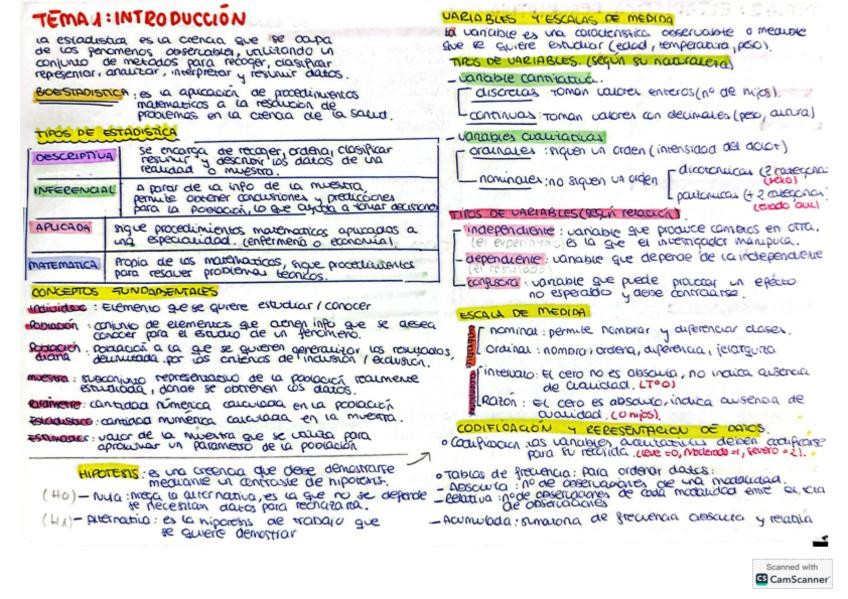 TEMA 1: INTRODUCCIÓN
La estadística es la ciencia que se ocupa
de los fenómenos observables, utilizando un
conjunto de métodos para recoger, clasificar
representar, analizar, interpretar y resumir datos.
BIOESTADISTICA: es la aplicación de procedimientos
matemáticos a la resolución de
problemas en la ciencia de la salud.
TIPOS DE ESTADÍSTICA
DESCRIPTIVA se encarga de recoger, ordena, clasificar
resumir y describir los datos de una
realidad o muestra.
INFERENCIAL A partir de la info de la muestra,
permite obtener conclusiones y predicciones
para la población, lo que ayuda a tomar decisiones
APLICADA sigue procedimientos matemáticos aplicados a
una especialidad. (enfermería o economía).
MATEMATICA Propia de las matemáticas, sigue procedimientos
para resolver problemas teóricos.
CONCEPTOS FUNDAMENTALES
Individuo: Elemento que se quiere estudiar / conocer
Población: conjunto de elementos que tienen info que se desea
conocer para el estudio de un fenómeno.
Población diana: Población a la que se quieren generalizar los resultados,
delimitada por los criterios de inclusión / exclusión.
muestra: subconjunto representativo de la población realmente
estudiada, donde se obtienen los datos.
Parámetro: cantidad numérica calculada en la población
Estadístico: cantidad numérica calculada en la muestra.
Estimador: valor de la muestra que se utiliza para
aproximar un parámetro de la población
HIPOTESIS: es una creencia que debe demostrarse
mediante un contraste de hipotesis.
(H0) - Nula: niega la alternativa, es la que no se defiende
se necesitan datos para rechazarla.
(H1) - Alternativa: es la hipotesis de trabajo que
se quiere demostrar
VARIABLES Y ESCALAS DE MEDIDA
la variable es una característica observable o medible
que se quiere estudiar (edad, temperatura, peso).
TIPOS DE VARIABLES (según su naturaleza)
- variable cantitativa.
discretas toman valores enteros (nº de hijos).
continuas: toman valores con decimales (peso, altura)
- variables cualitativas
ordinales: siguen un orden (intensidad del dolor)
nominales: no siguen un orden
dicotomicas (2 categorias)
(sexo)
politomicas (+ 2 categorias)
(estado civil)
TIPOS DE VARIABLES (según relación).
independiente: variable que produce cambios en otra.
(el experimento) es la que el investigador manipula.
- dependiente: variable que depende de la independiente
(el resultado)
confusora: variable que puede provocar un efecto
no esperado y debe controlarse.
ESCALA DE MEDIDA
nominal: permite nombrar y diferenciar clases.
Ordinal: nombra, ordena, diferencia, jerarquiza
intervalo: El cero no es absoluto, no indica ausencia
de cualidad. (Tª 0)
Razón: El cero es absoluto, indica ausencia de
cualidad. (0 hijos).
CODIFICACIÓN Y REPRESENTACION DE DATOS.
Codificación: las variables cualitativas deben codificarse
para su recogida. (leve=0, Moderado=1, severo=2).
Tablas de frecuencia: para ordenar datos:
- Absoluta: nº de observaciones de una modalidad.
- Relativa: nº de observaciones de cada modalidad entre el total
de observaciones
- Acumulada: sumatoria de frecuencia absoluta y relativa
1
Scanned with
CS CamScanner